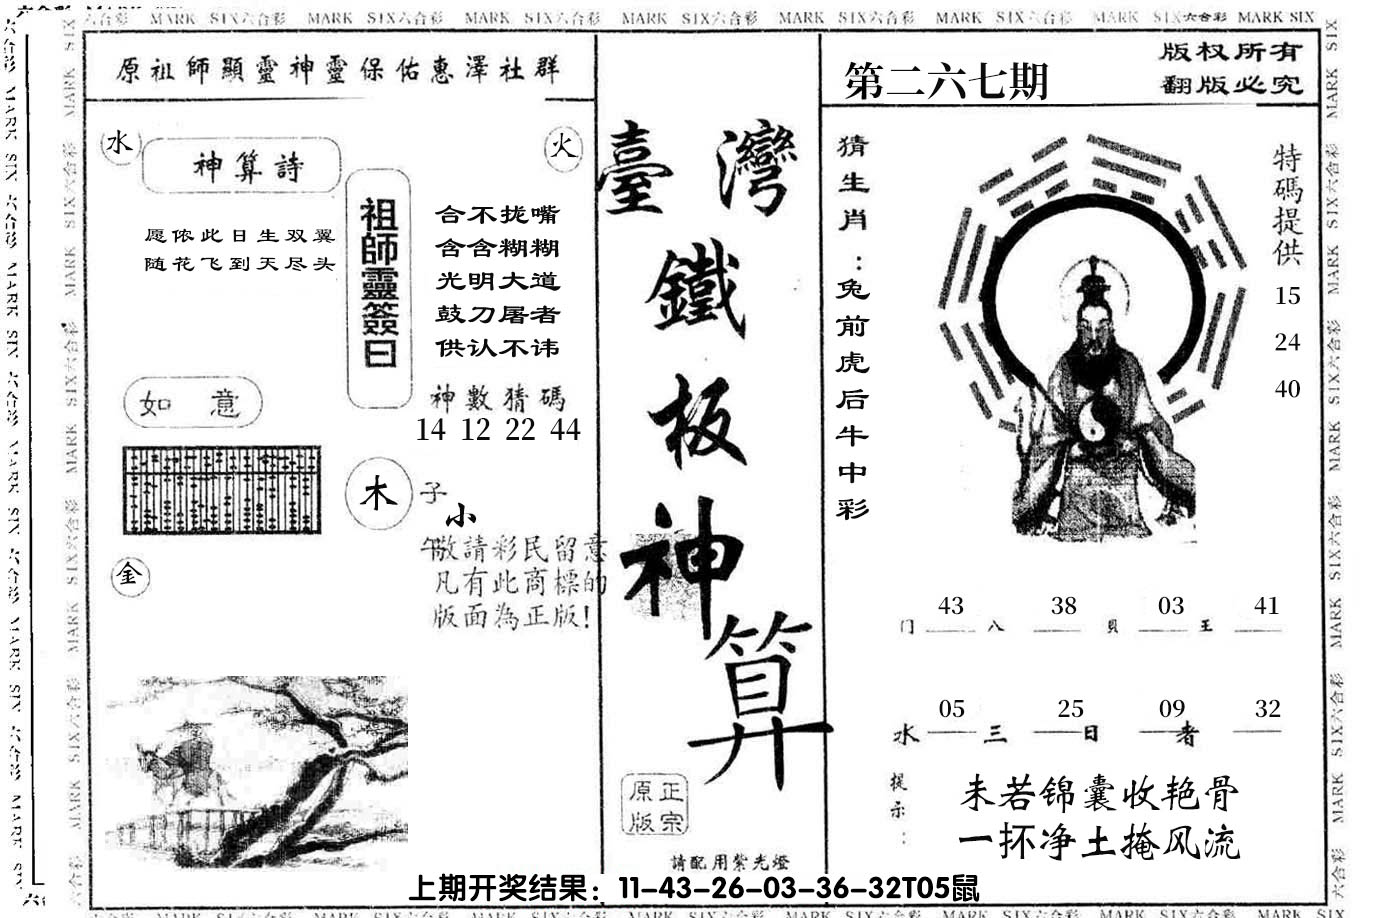 MARK SIX六合彩 MARK SIX六合彩 MARK SIX六合彩 MARK SIX六合彩 MARK SIX六合彩 MARK SIX六合彩 MARK SIX六合彩 MARK SIX
原祖師顯靈神靈保佑惠澤社群
水
神算詩
火
愿侬此日生双翼
随花飞到天尽头
祖師靈簽曰
合不拢嘴
含含糊糊
光明大道
鼓刀屠者
供认不讳
神數猜碼
14 12 22 44
如意
木
子
小
午
金
敬請彩民留意
凡有此商標的
版面為正版!
臺灣
鐵
板
神
算
原正
版宗
請配用紫光燈
第二六七期
版权所有
翻版必究
猜生肖:兔前虎后牛中彩
特碼提供
15
24
40
43 38 03 41
门 八 貝 王
05 25 09 32
水 三 日 者
提示:
未若锦囊收艳骨
一抔净土掩风流
上期开奖结果：11-43-26-03-36-32T05鼠